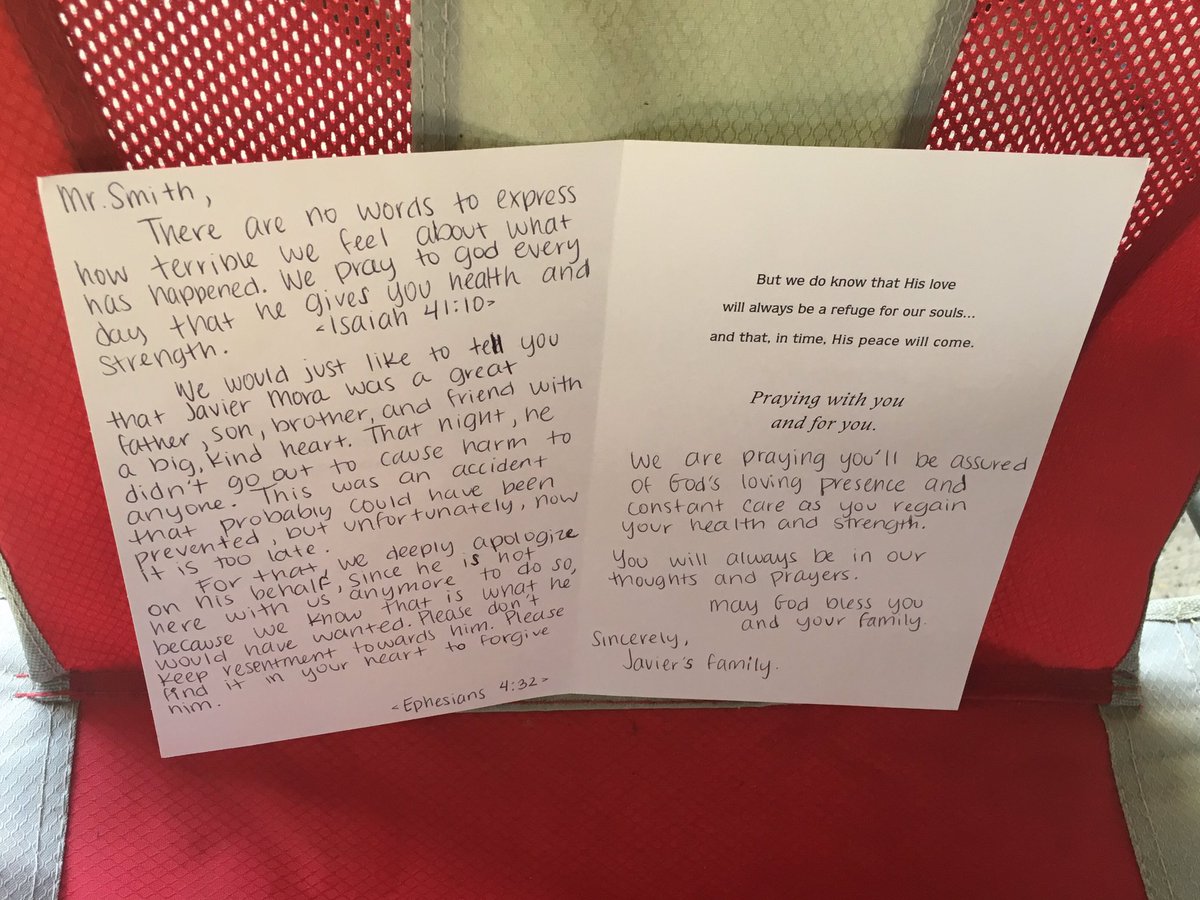 Mr. Smith,
There are no words to express
how terrible we feel about what
has happened. We pray to god every
day that he gives you health and
strength. <Isaiah 41:10>
We would just like to tell you
that Javier Mora was a great
father, son, brother, and friend with
a big, kind heart. That night, he
didn't go out to cause harm to
anyone. This was an accident
that probably could have been
prevented, but unfortunately, now
it is too late.
For that, we deeply apologize
on his behalf, since he is not
here with us anymore to do so,
because we know that is what he
would have wanted. Please don't
keep resentment towards him. Please
find it in your heart to forgive
him. <Ephesians 4:32>
But we do know that His love
will always be a refuge for our souls...
and that, in time, His peace will come.
Praying with you
and for you.
We are praying you'll be assured
of God's loving presence and
constant care as you regain
your health and strength.
You will always be in our
thoughts and prayers.
May God bless you
and your family.
Sincerely,
Javier's family.